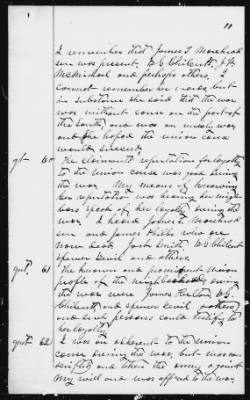 11
I remember that James T Morehead
sen was present, W S Chilcutt, J W
McMichael and perhaps others, I
cannot remember her words but
in substance she said that the war
was without cause on the part of
the South, and was an unholy war
and she hoped the union cause
would succeed
qst 60 The claimants reputation for loyalty
to the union cause was good during
the war. My means of knowing
her reputation was hearing her neigh-
bors speak of her loyalty during the
war. I heard John
sen and James Phibbs who are
now dead, Smith W S Chilcutt
Spencer Levil and others
qust. 61 The known and prominent union
people of the neighborhood during
the war were James W S
Chilcutt, and Spencer Levil others
and such persons could testify to
her loyalty
qust 62 I was an adherent to the union
cause during the war, but was con
scripted and taken the army against
my will and was opposed to the war